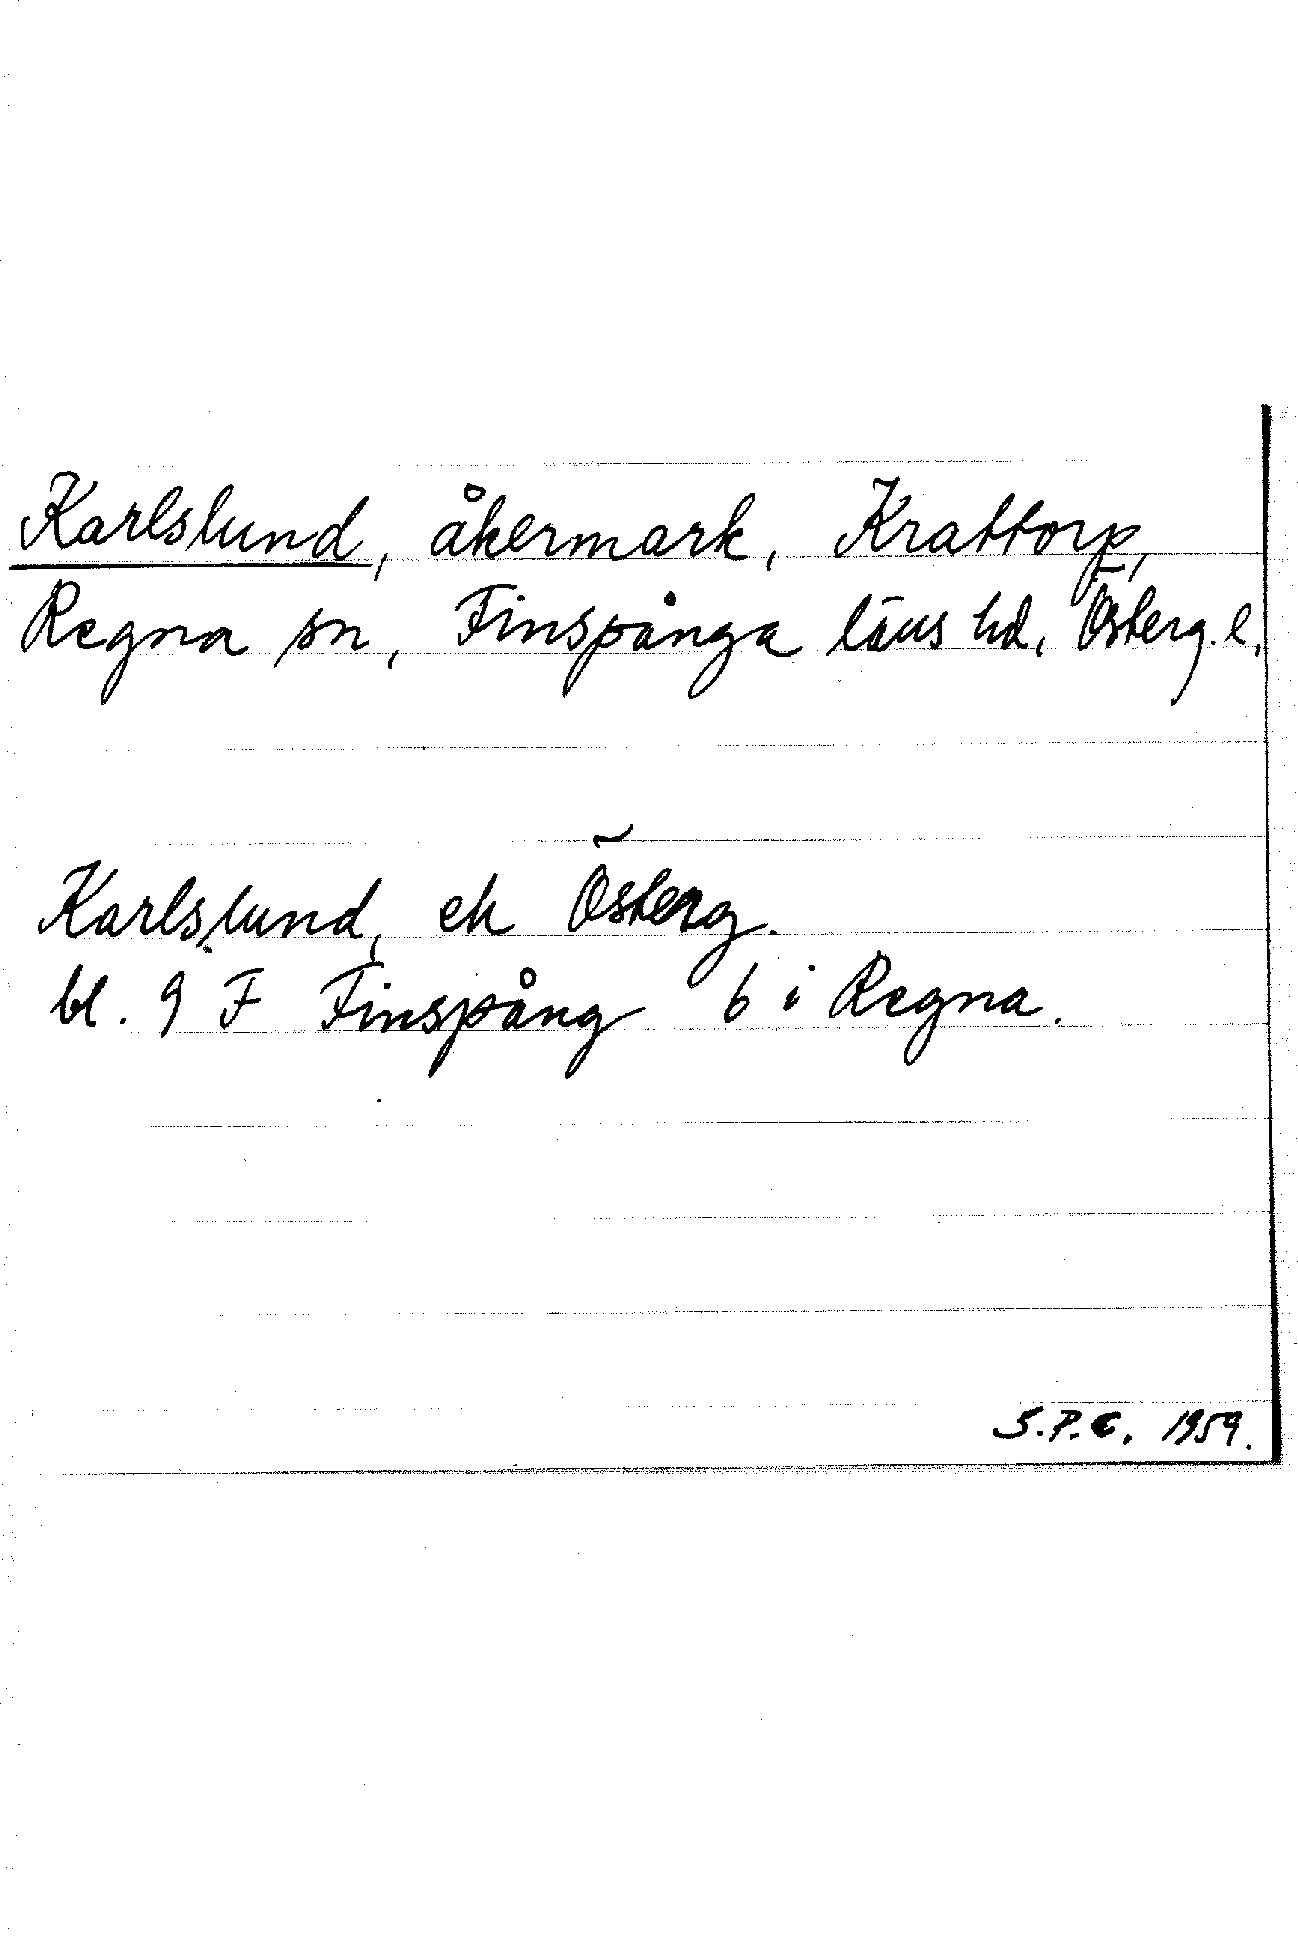 Karlslund, åkermark, Krattorp,
Regna sn, Finspånga läns hd, Österg. l.
Karlslund, ek Österg.
bl. 9 F Finspång 6 i Regna.
S.P.E. 1959.